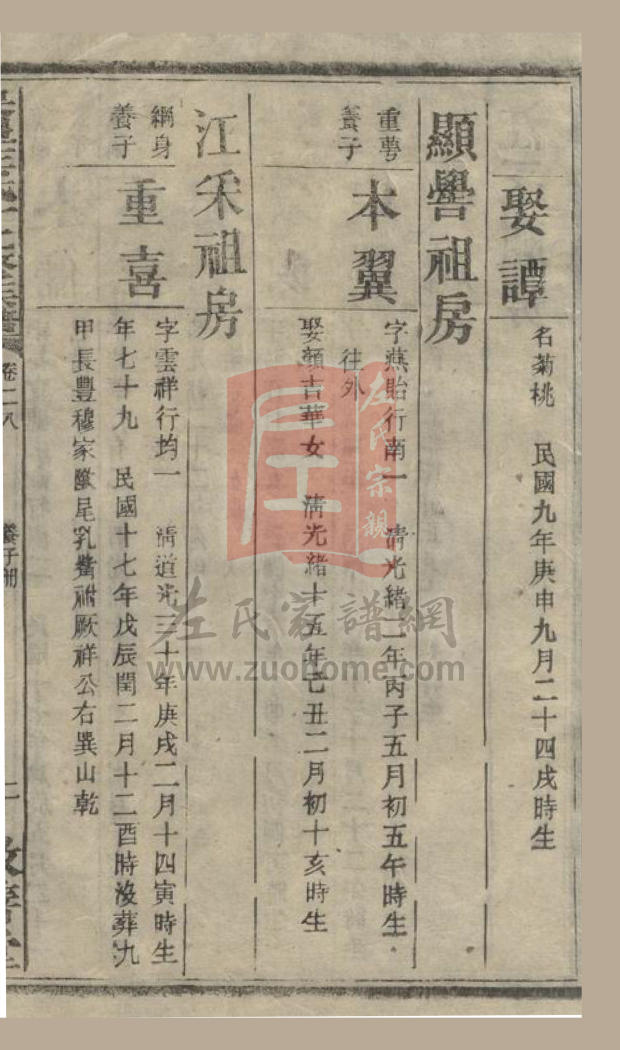 娶譚
名菊桃　民國九年庚申九月二十四戌時生
顯譽祖房
重蕚
養子
本翼
字燕貽行南一　清光緒二年丙子五月初五午時生
往外
娶顏吉華女　清光緒十五年己丑二月初十亥時生
江釆祖房
綱身
養子
重喜
字雲祥行均一　清道光三十年庚戌二月十四寅時生
年七十九　民國十七年戊辰閏二月十二酉時沒葬九
甲長豐穆家隂尾乳鴦祔厥祥公右巽山乾
卷二八
養子開
二
左氏宗親
左氏家譜網
www.zuohome.com